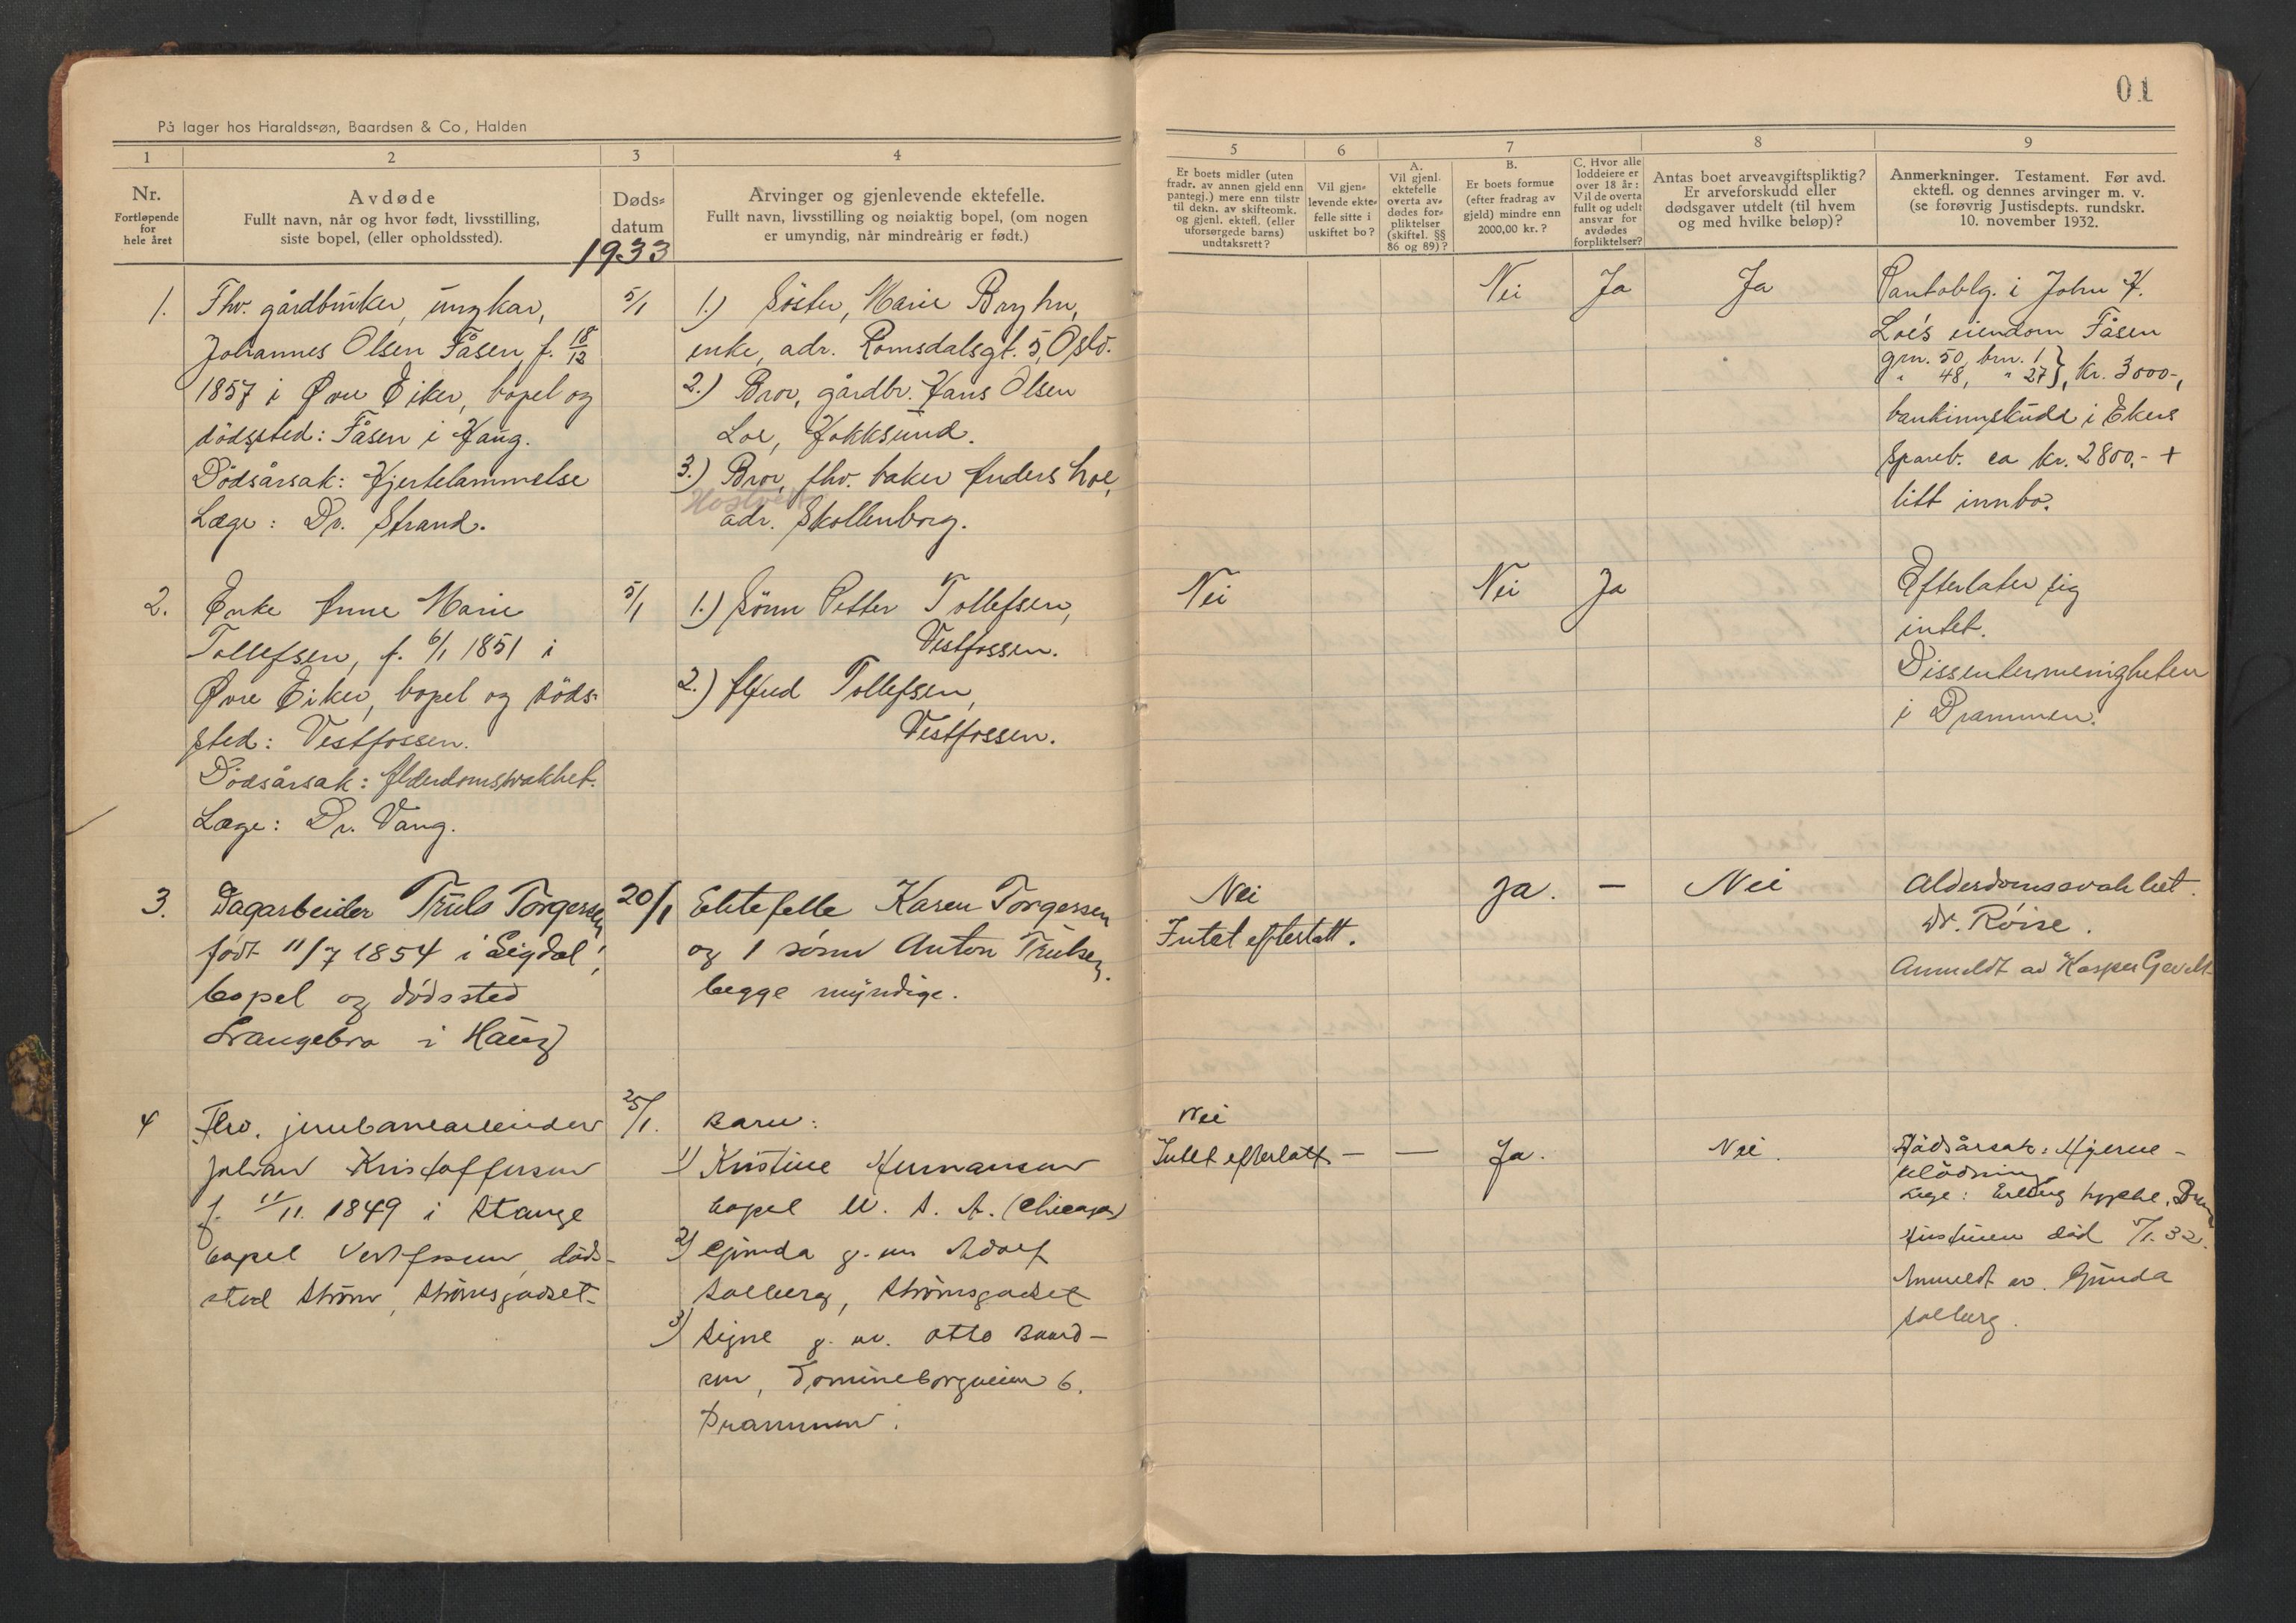 01
På lager hos Haraldssøn, Baardsen & Co, Halden
1 2 3 4
Nr.
Fortløpende
for
hele året
Avdøde
Fullt navn, når og hvor født, livsstilling,
siste bopel, (eller opholdssted).
Døds-
datum
1933
Arvinger og gjenlevende ektefelle.
Fullt navn, livsstilling og nøiaktig bopel, (om nogen
er umyndig, når mindreårig er født.)
5 6 7 8 9
Er boets midler (uten
fradr. av annen gjeld enn
pantegj.) mere enn tilstr
til dekn. av skifteomk.
og gjenl. ektefl. (eller
uforsørgede barns)
undtaksrett?
Vil gjen-
levende ekte-
felle sitte i
uskiftet bo?
A.
Vil gjenl.
ektefelle
overta av-
dødes for-
pliktelser
(skiftel. §§
86 og 89)?
B.
Er boets formue
(efter fradrag av
gjeld) mindre enn
2000,00 kr.?
C. Hvor alle
loddeiere er
over 18 år:
Vil de overta
fullt og udelt
ansvar for
avdødes
forpliktelser?
Antas boet arveavgiftspliktig?
Er arveforskudd eller
dødsgaver utdelt (til hvem
og med hvilke beløp)?
Anmerkninger. Testament. Før avd.
ektefl. og dennes arvinger m. v.
(se forøvrig Justisdepts. rundskr.
10. november 1932.
1.
Fhv. gårdbruker, ungkar,
Johannes Olsen Fåsen, f. 18/12
1857 i Øvre Eiker, bopel og
dödssted: Fåsen i Haug.
Dödsårsak: Hjertelammelse
Læge: Dr. Strand.
5/1
1.) Söster, Marie Bryhn,
enke, adr. Romsdalsgt. 5, Oslo.
2.) Bror, gårdbr. Hans Olsen
Loe, Hokksund.
3.) Bror, fhv. baker Anders Loe,
adr. Skollenborg.
Nei Ja Ja
Pantoblg. i John H.
Loe's eiendom Fåsen
grn. 50, brn. 1
" 48, " 27 }, kr. 3000-,
bankinnskudd i Ekers
Spareb. ca kr. 2800,- +
litt innbo.
2.
Enke Anne Marie
Tollefsen, f. 6/1 1851 i
Øvre Eiker, bopel og döds-
sted: Vestfossen.
Dödsårsak: Alderdomsvakhet.
Læge: Dr. Vang.
5/1
1.) Sönn Petter Tollefsen,
Vestfossen.
2.) Alfred Tollefsen,
Vestfossen.
Nei Nei Ja
Efterlater sig
intet.
Dissentermenigheten
i Drammen.
3.
Dagarbeider Truls Torgersen
født 11/7 1854 i Sigdal,
bopel og dødssted
i Haug
20/1
Ektefelle Karen Torgersen
og 1 sønn Anton Trulsen.
begge myndige.
Nei
Intet efterlatt.
Ja. — Nei
Alderdomssvakhet.
Dr. Röise.
Anmeldt av Kasper
4
Fhv. jernbanearbeider
Johan Kristoffersen
f. 11/11. 1849 i Stange
bopel Vestfossen, døds-
sted Strøm, Strømsgodset.
25/1.
Barn:
1) Kristine Hermansen
bopel U. S. A. (Chicago)
2) Gunda g. m. Adolf
Solberg, Strømsgodset
3) Signe g. m. Otto
6.
Drammen.
Nei
Intet efterlatt — — Ja. Nei.
Dødsårsak: Hjerne-
blødning
Læge: Erling
Hustruen død 32.
Anmeldt av. Gunda
Solberg.